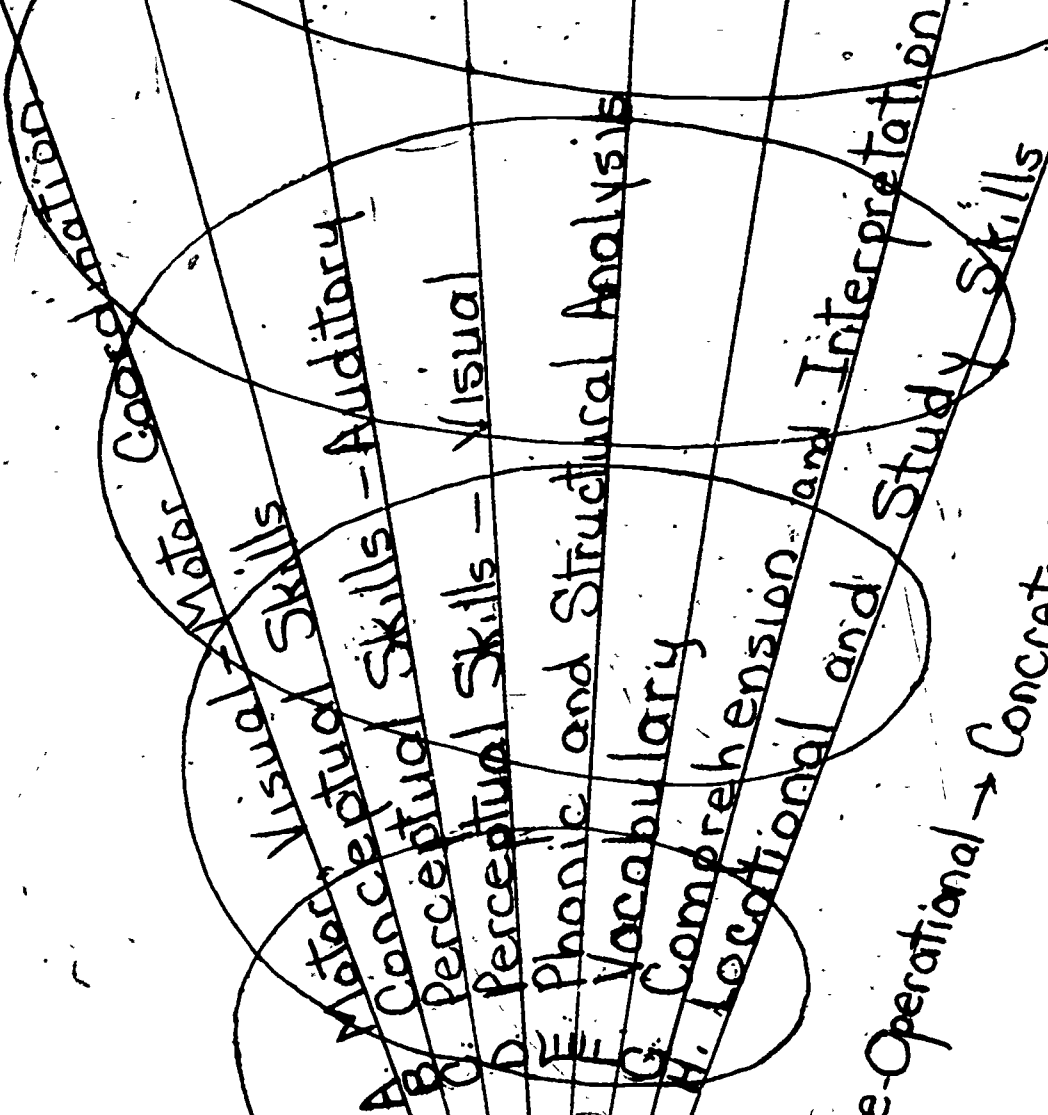 A. Motor Visual-Motor Coordination
B. Conceptual Skills
C. Perceptual Skills - Auditory
D. Perceptual Skills - Visual
E. Phonic and Structural Analysis
F. Vocabulary
G. Comprehension and Interpretation
H. Locational and Study Skills
e-Operational → Concret